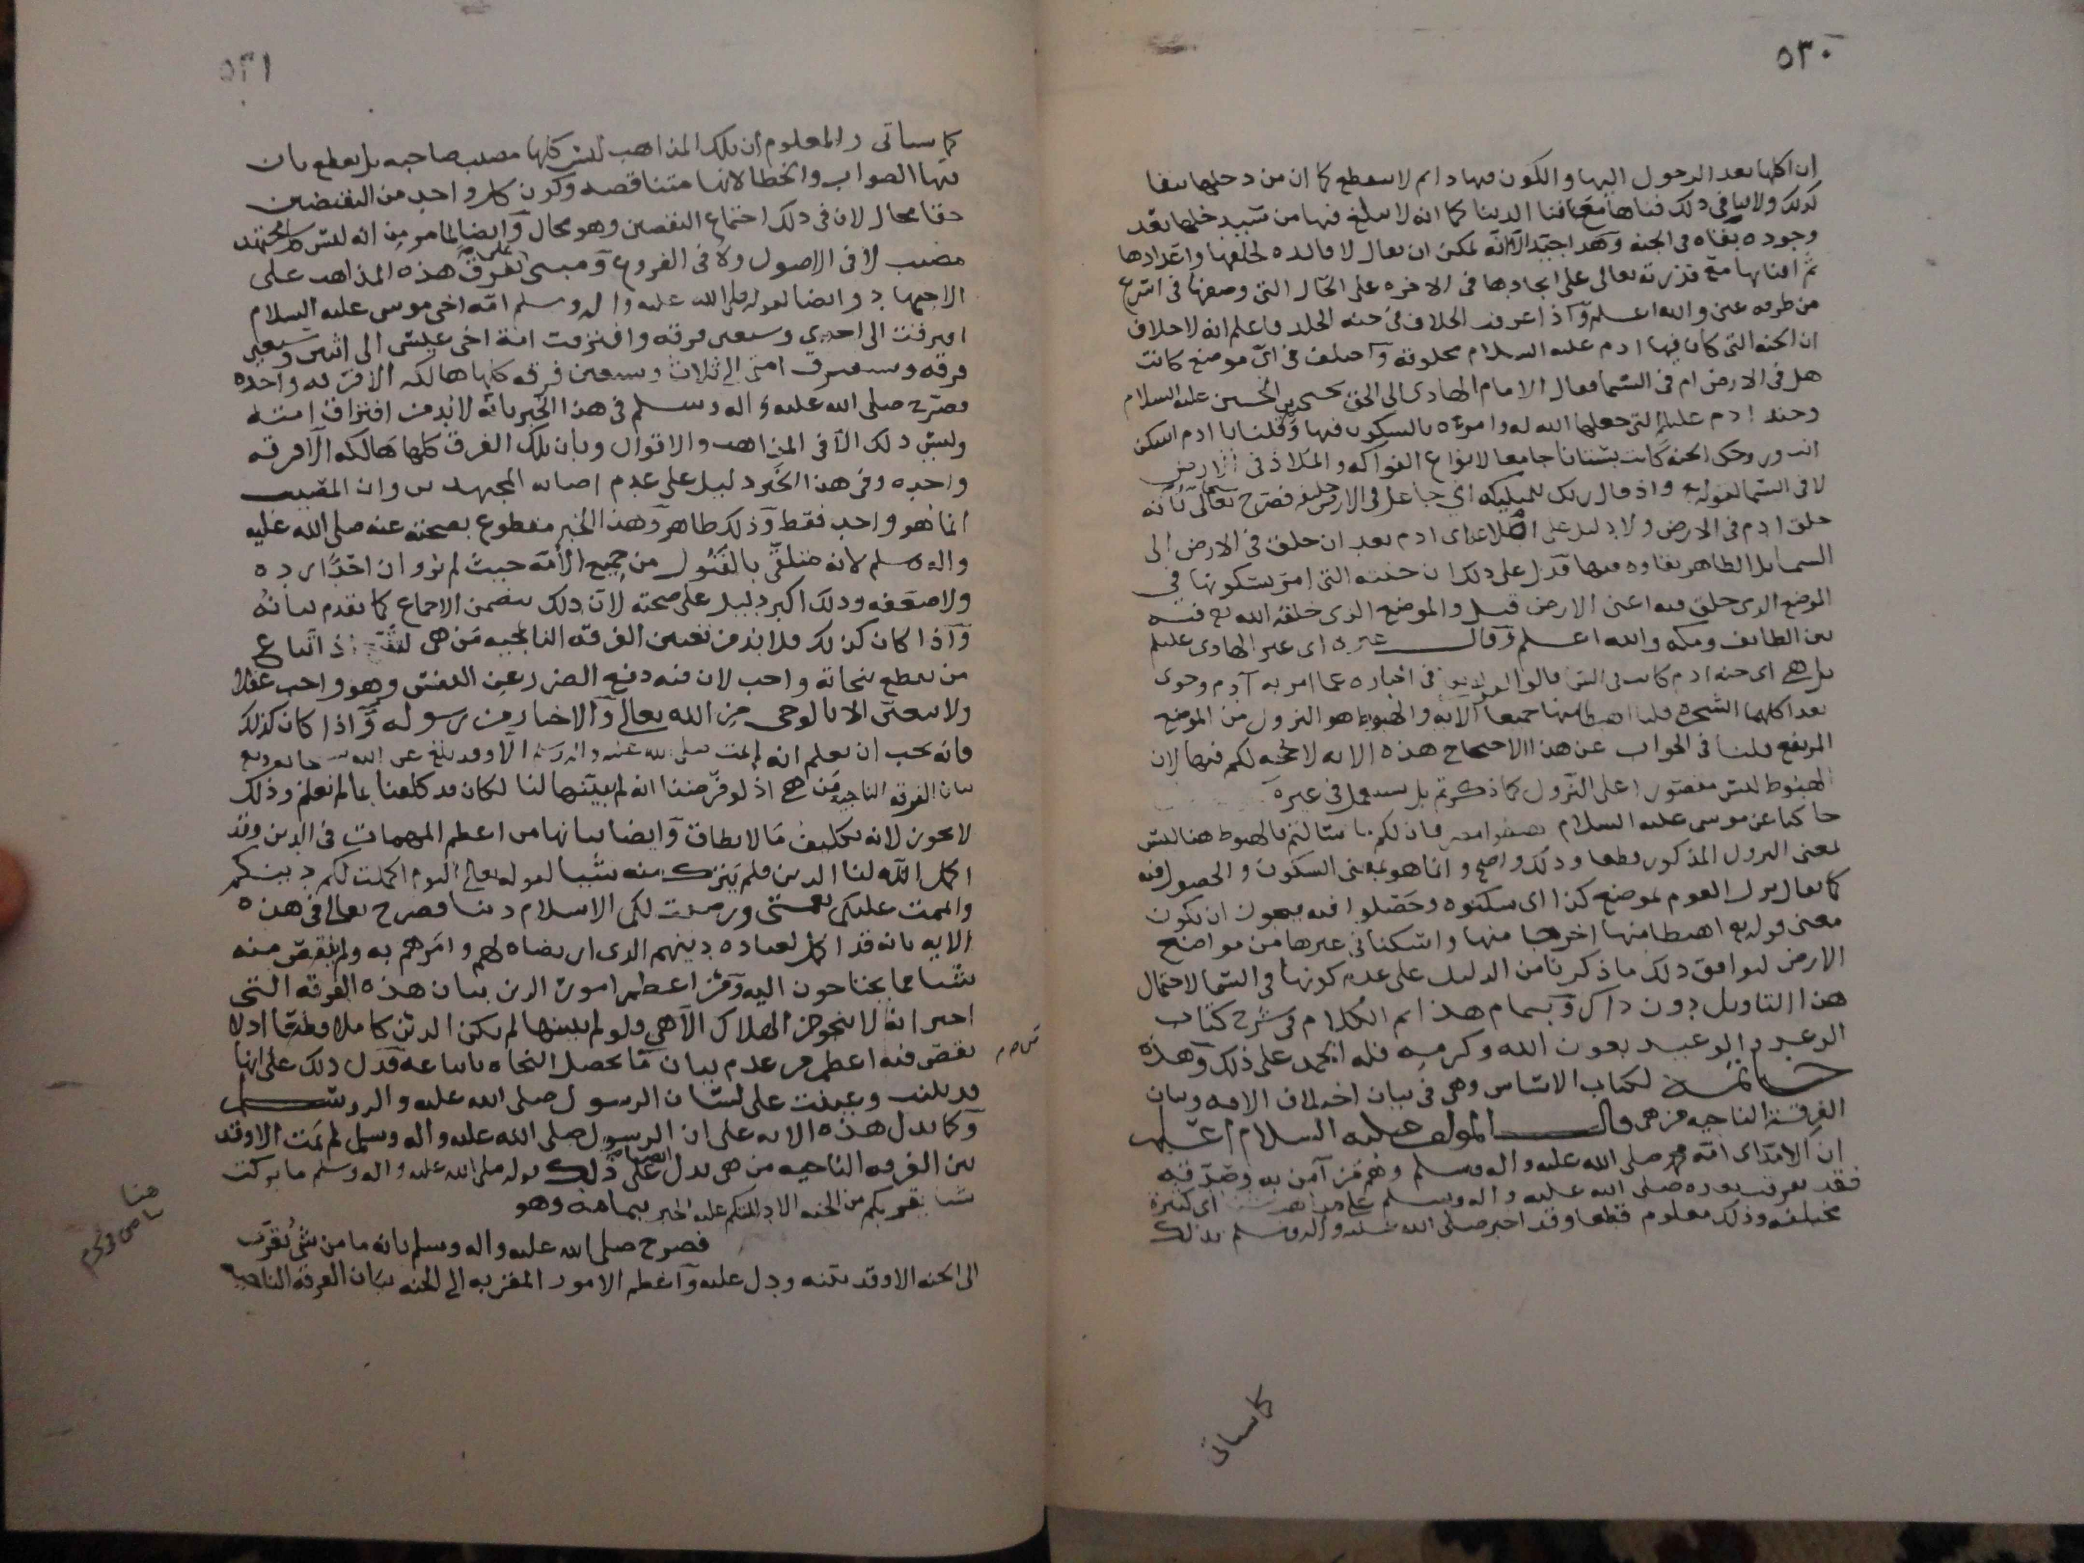 ٥٣٠
ان اكلها بعد الدخول اليها والكون فيها دائم لا ينقطع كما ان من دخلها يبقا
كذلك ولا ينافي ذلك فناها مع فنا الدنيا كما انه لا ينافي فيها من
وجوده بقاه في الجنة لانه يمكن ان يقال لا فائده لخلقها واعدادها
ثم افنائها مع قدرته تعالى على ايجادها في الاخره على الحال التي وصفها في اسرع
من طرفه عين والله اعلم واذا عرفت الخلاف في جنه الخلد فاعلم انه لا خلاف
ان الجنه التي كان فيها ادم عليه السلام مخلوقه واختلف في اي موضع كانت
هل في الارض ام في السما فقال الامام الهادي الى الحق يحيى بن الحسين عليه السلام
وجنه ادم عليلم التي جعلها الله له وامره بالسكون فيها وقلنا يا ادم اسكن
انت وزوجك الجنه كانت بستانا جامعا لانواع الفواكه والملاذ في الارض
لا في السما لقوله تع واذ قال ربك للمليكه اني جاعل في الارض خليفه فصرح تعالى بانه
خلق ادم في الارض ولا دليل على ادم بعد ان خلق في الارض الى
السما بل الظاهر بقاوه فيها فدل على ذلك ان جنته التي امر بسكونها في
الموضع الذي خلق فيه اعني الارض قيل والموضع الذي خلقه الله تع فيه
بين الطائف ومكه والله اعلم وقال غيره اي غير الهادي عليلم
بل هي اي جنه ادم كانت في السما قالوا لقوله تعالى في اخباره عما امر به آدم وحوى
بعد اكلهما الشجره قلنا اهبطا منها جميعا الآيه والهبوط هو النزول من الموضع
المرتفع قلنا في الجواب عن هذا الاحتجاج هذه الايه لا حجه لكم فيها لان
الهبوط ليس مقصورا على النزول كما ذكرتم بل يستعمل في غيره
حاكيا عن موسى عليه السلام اهبطوا مصر فان لكم ما سالتم فالهبوط هنا ليس
بمعنى النزول المذكور قطعا وذلك واضح وانما هو بمعنى السكون والحصول فيه
كما يقال نزل القوم بموضع كذا اي سكنوه وحصلوا فيه فيجوز ان يكون
معنى قوله تع اهبطا منها اخرجا منها واسكنا في غيرها من مواضع
الارض ليوافق ذلك ما ذكرنا من الدليل على عدم كونها في السما لاحتمال
هذا التاويل دون ذاك وبتمام هذا تم الكلام في شرح كتاب
الوعد والوعيد بعون الله وكرمه فله الحمد على ذلك وهذه
خاتمة لكتاب الاساس وهي في بيان اختلاف الامه وبيان
الفرقة الناجيه من هي قال المولف عليه السلام اعلم
ان الامه اي امة محمد صلى الله عليه واله وسلم وهم من آمن به وصدقه
فقد تفرقت بعده صلى الله عليه واله وسلم على مذاهب اي كثيرة
مختلفه وذلك معلوم قطعا وقد اخبر صلى الله عليه واله وسلم بذلك
كما سياتي
٥٣١
كما سياتي والمعلوم ان تلك المذاهب ليس كلها مصيب صاحبه بل يقطع بان
فيها الصواب والخطا لانها متناقصه وكون كل واحد من النقيضين
حقا محال لان في ذلك اجتماع النقيضين وهو محال وايضا لما مر من انه ليس كل مجتهد
مصيب لا في الاصول ولا في الفروع ومبنى تفرق هذه المذاهب على
الاجتهاد وايضا لقوله صلى الله عليه واله وسلم امه اخي موسى عليه السلام
افترقت الى احدى وسبعين فرقه وافترقت امة اخي عيسى الى اثنين وسبعين
فرقه وستفترق امتي الى ثلاث وسبعين فرقه كلها هالكه الا فرقه واحده
فصرح صلى الله عليه واله وسلم في هذا الخبر بانه لا بد من افتراق امته
وليس ذلك الا في المذاهب والاقوال وبان تلك الفرق كلها هالكه الا فرقه
واحده وفي هذا الخبر دليل على عدم اصابه المجتهدين وان المصيب
انما هو واحد فقط وذلك ظاهر وهذا الخبر مقطوع بصحته عنه صلى الله عليه
واله وسلم لانه متلقى بالقبول من جميع الأمه حيث لم يرو ان احدا رده
ولا ضعفه وذلك اكبر دليل على صحته لان ذلك يتضمن الاجماع كما تقدم بيانه
واذا كان كذلك فلا بد من تعيين الفرقه الناجيه من هي اذ اتباع
من يقطع بنجاته واجب لان فيه دفع الضرر عن النفس وهو واجب عقلا
ولا يتعين الا بالوحي من الله تعالى والاخبار من رسوله واذا كان كذلك
فانه يجب ان يعلم انه لم يمت صلى الله عليه واله وسلم الا وقد بلغ عن الله
بيان الفرقه الناجيه من هي اذ لو فرضنا انه لم يبينها لنا لكان قد كلفنا بما لم نعلم وذلك
لا يجوز لانه تكليف ما لا يطاق وايضا بيانها من اعظم المهمات في الدين وقد
اكمل الله لنا الدين فلم يترك منه شيئا لقوله تعالى اليوم اكملت لكم دينكم
واتممت عليكم نعمتي ورضيت لكم الاسلام دينا فصرح تعالى في هذه
الايه بانه قد اكمل لعباده دينهم الذي ارتضاه لهم وامرهم به ولم ينقص منه
شيا مما يحتاجون اليه ومن اعظم امور الدين بيان هذه الفرقه التي
اخبر انه لا ينجو من الهلاك الا هي ولو لم يبينها لم يكن الدين كاملا قطعا اذ لا
نقص فيه اعظم من عدم بيان ما يحصل النجاه باتباعه فدل ذلك على انها
قد بلغت وعينت على لسان الرسول صلى الله عليه واله وسلم
وكما يدل هذه الايه على ان الرسول صلى الله عليه واله وسلم لم يمت الا وقد
بين الفرقه الناجيه من هي يدل على ذلك ايضا قوله صلى الله عليه واله وسلم ما تركت
شيا يقربكم من الجنه الا دللتكم عليه الخبر بتمامه وهو
فصرح صلى الله عليه واله وسلم بانه ما من شي يقرب
الى الجنه الا وقد بينه ودل عليه واعظم الامور المقربه الى الجنه بيان الفرقه الناجيه